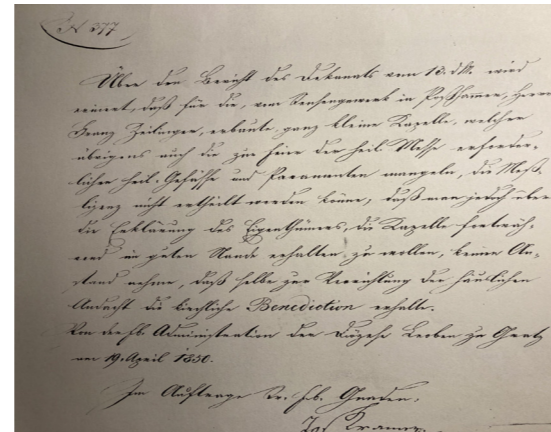 N 377
Über den Bericht des Dekanats vom 13. dM. wird
erinnert, daß für die, vom Sensengewerk in Paßhammer, Herrn
Franz Zeilinger, erbaute, ganz kleine Kapelle, welcher
übrigens auch die zur Feier der heil. Messe erforder-
lichen heil. Gefäße und Paramenten mangeln, die Meß-
lizenz nicht ertheilt werden könne, daß man jedoch über
die Erklärung des Eigenthümers, die Kapelle fortwäh-
rend in gutem Stande erhalten zu wollen, keinen An-
stand nehme, daß selbe zur Verrichtung der häuslichen
Andacht die kirchliche Benediction erhalte.
Von der fb. Administration der Diözese Leoben zu Gratz
am 19. April 1850.
Im Auftrage Sr. fb. Gnaden.
Jos. Kramer